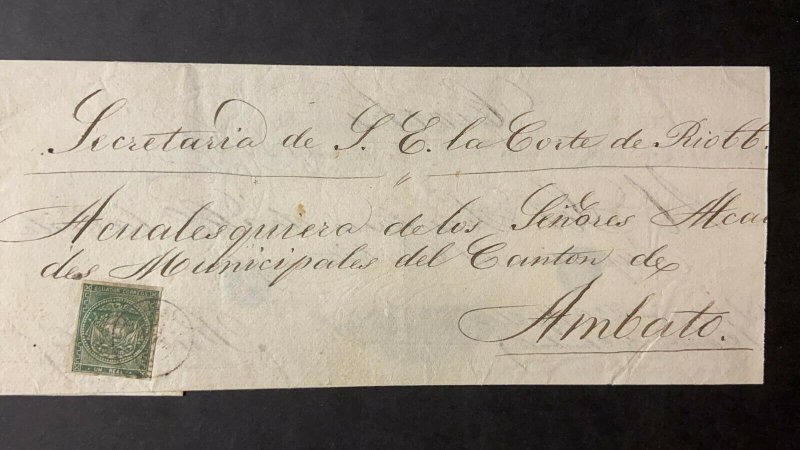 Secretaria de S. E. la Corte de Riobb.
"
A cualesquiera de los Señores Alcal
des Municipales del Canton de
Ambato.
ECUADOR CORREOS
UN REAL